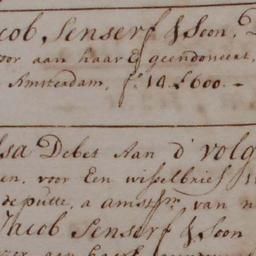 cob Senserf & Soon,
oor aan haar E geendonceert,
Amsterdam, 14.£600.-
sa Debet Aan d'volg
en, voor Een wisselbrief
depútte, a amst
van n
Jacob Senserf & Soon